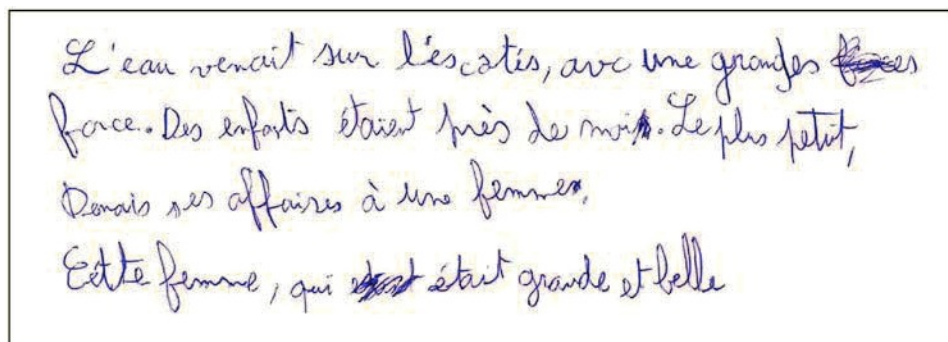 L'eau venait sur l'éscotés, avc une grandes
force. Des enfants étaient près de moi. Le plus petit,
Donais ses affaires à une femme.
Cette femme, qui était grande et belle